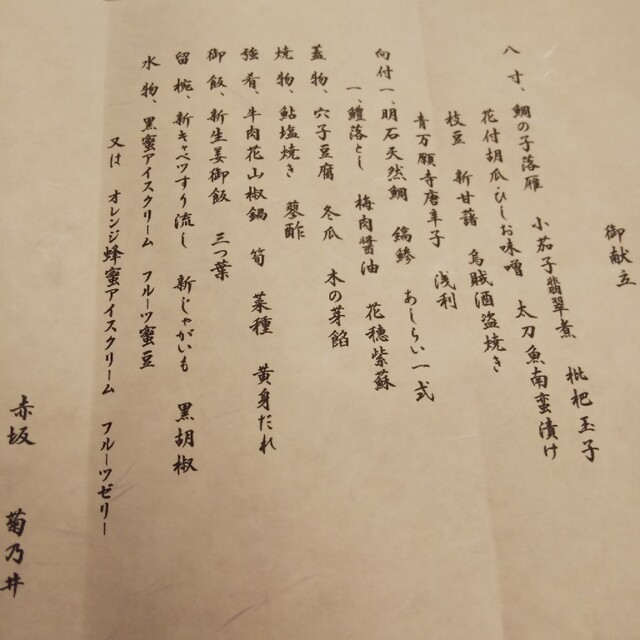 御献立
八寸、鯛の子落雁 小茄子翡翠煮 枇杷玉子
花付胡瓜・ひしお味噌 太刀魚南蛮漬け
枝豆 新甘藷 烏賊酒盗焼き
青万願寺唐辛子 浅利
向付一、明石天然鯛 縞鯵 あしらい一式
一、鱧落とし 梅肉醤油 花穂紫蘇
蓋物、穴子豆腐 冬瓜 木の芽餡
焼物、鮎塩焼き 蓼酢
強肴、牛肉花山椒鍋 筍 菜種 黄身だれ
御飯、新生姜御飯 三つ葉
留椀、新キャベツすり流し 新じゃがいも 黒胡椒
水物、黒蜜アイスクリーム フルーツ蜜豆
又は オレンジ蜂蜜アイスクリーム フルーツゼリー
赤坂 菊乃井